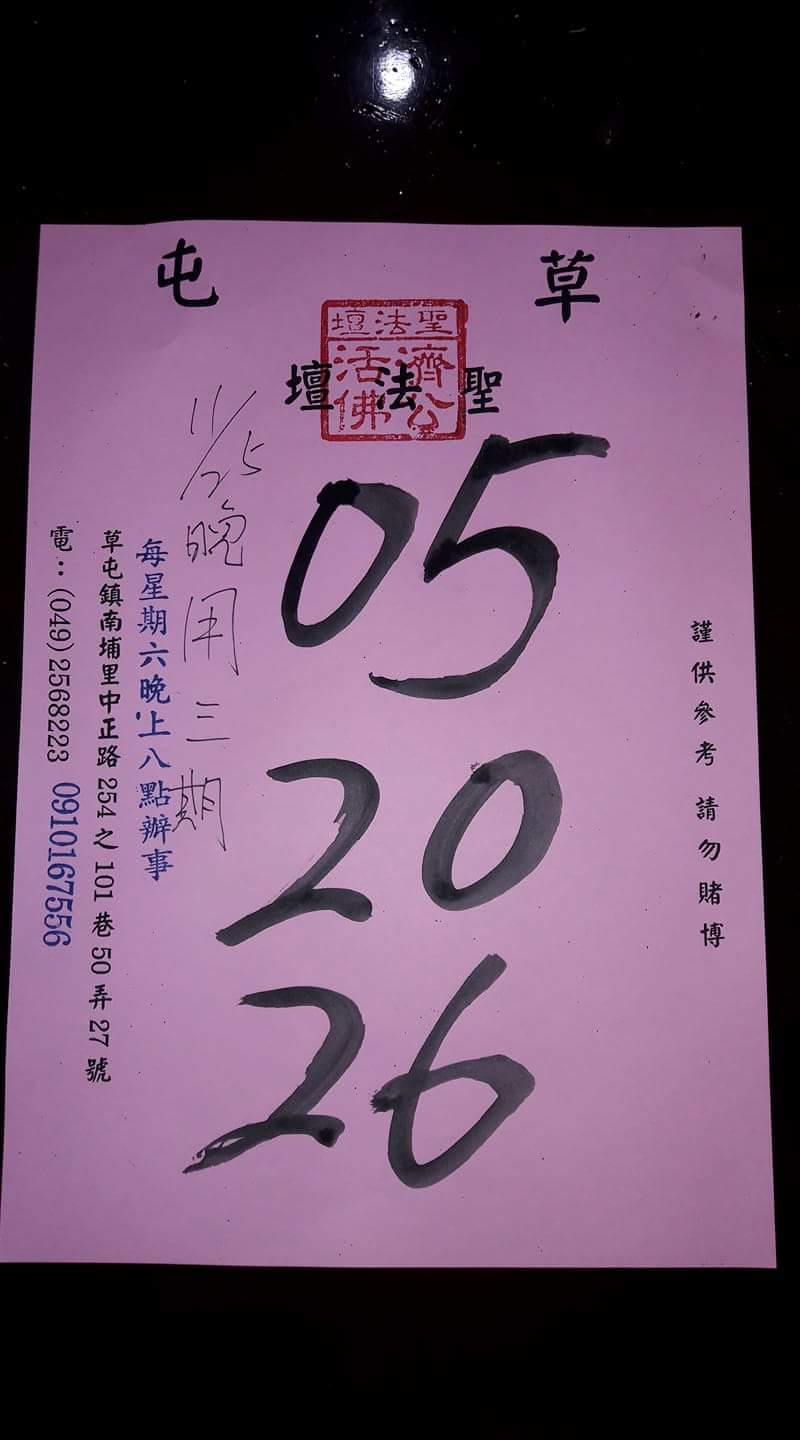 草屯
聖法壇
聖法壇
濟公
活佛
05
20
26
謹供參考 請勿賭博
11/25晚用三期
每星期六晚上八點辦事
草屯鎮南埔里中正路254之101巷50弄27號
電：(049)2568223 0910167556